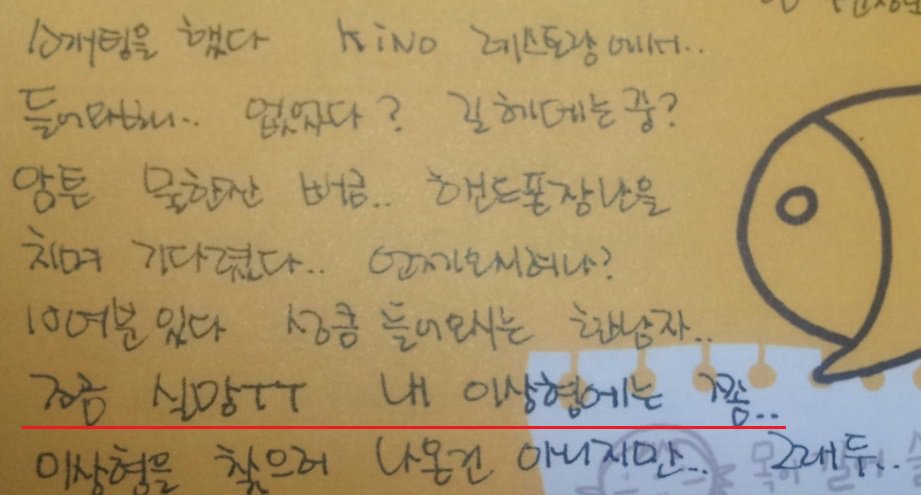 소개팅을 했다 KiNO 레스토랑에서..
들어와보니.. 없었다? 길헤메는중?
암튼 물한잔 벌컥.. 핸드폰장난을
치며 기다렸다.. 언제오시려나?
10여분있다 성큼 들어오시는 한남자..
조금 실망ㅜㅜ 내 이상형에는 쫌..
이상형을 찾으러 나온건 아니지만.. 그래두..